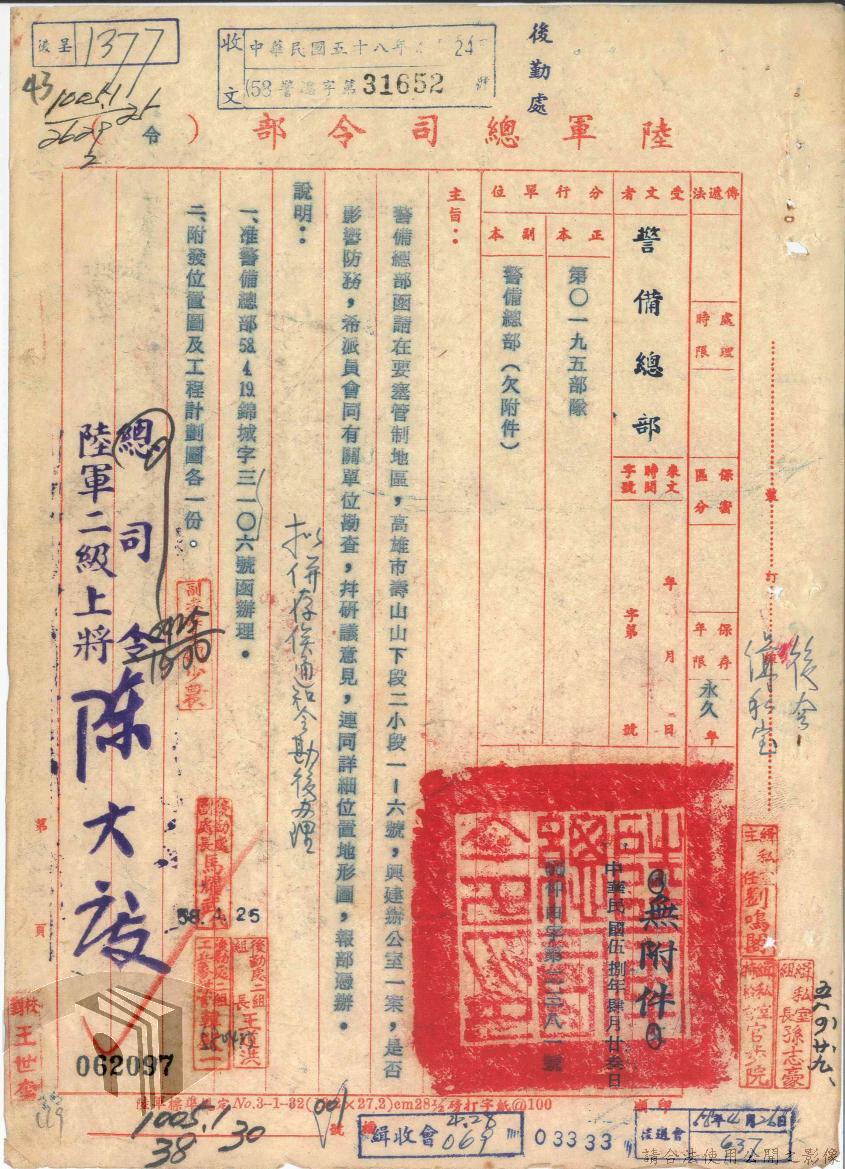 後呈 1377
收文 中華民國五十八年 24
(58警 字第31652 號
後勤處
43
1005.1
2629
2
25
陸軍總司令部( )令
傳遞法
處理時限
保密區分
保存年限 永久 年
受文者 警備總部
來文時間字號 年 月 日 字第 號
分行單位
正本 第〇一九五部隊
副本 警備總部(欠附件)
中華民國伍捌年肆月廿叁日
無附件
主旨:
警備總部函請在要塞管制地區,高雄市壽山山下段二小段一-六號,興建辦公室一案,是否
影響防務,希派員會同有關單位勘查,并研議意見,連同詳細位置地形圖,報部憑辦。
說明:
一、准警備總部58.4.19.錦城字三一〇六號函辦理。
二、附發位置圖及工程計劃圖各一份。
擬併存俟通知會勘後辦理
總司令
陸軍二級上將 陳大慶
0425
1500
後勤處副處長 馬耀武
58.4.25
後勤處二組組長 王寶洪
後勤處二組
裝
訂
緝私室
主任 劉鳴閣
緝私室組長 孫志豪
緝私室
五八、四、廿九、
校對 王世奎
第 頁
062097
陸軍標準規定No.3-1-32( ×27.2)cm28½磅打字紙@100
印 號
1005.1
38
30
緝收會 4.28 069 號
03333
58年4月26日
637
請合法使用公開之影像